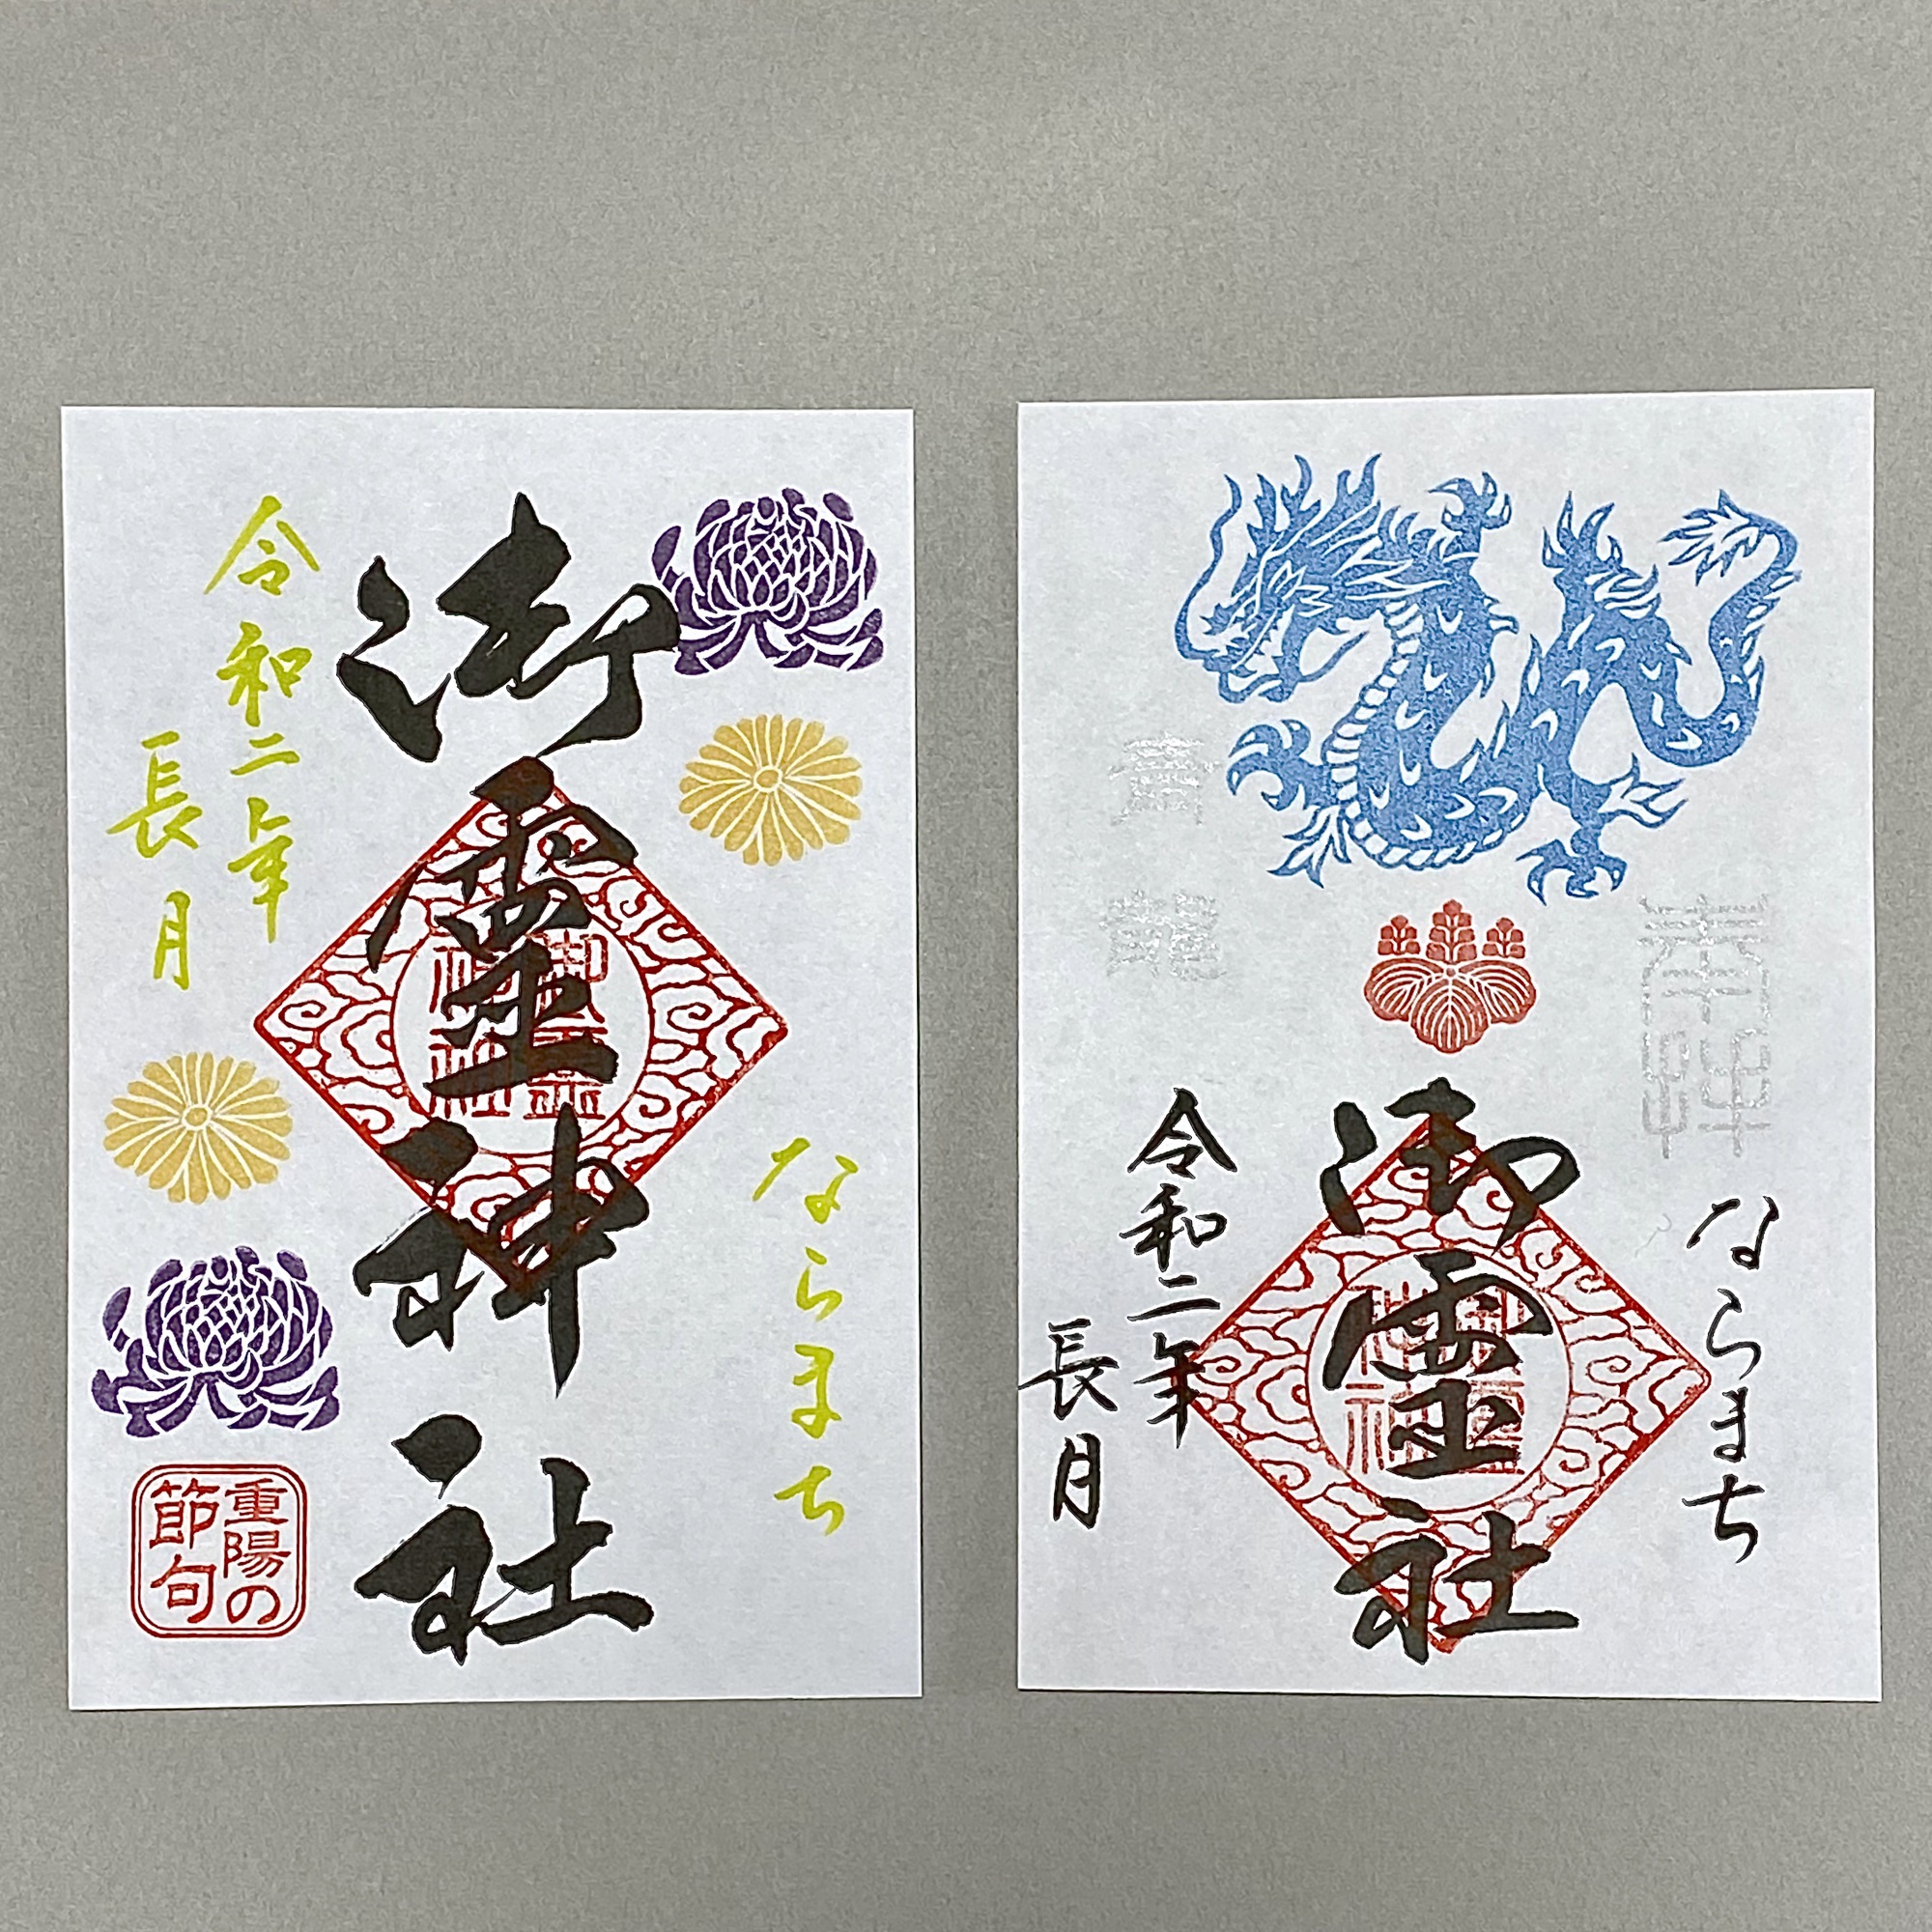 御霊神社
ならまち
令和二年
長月
重陽の
節句
御霊
神社
奉拝
ならまち
御霊社
令和二年
長月
青龍